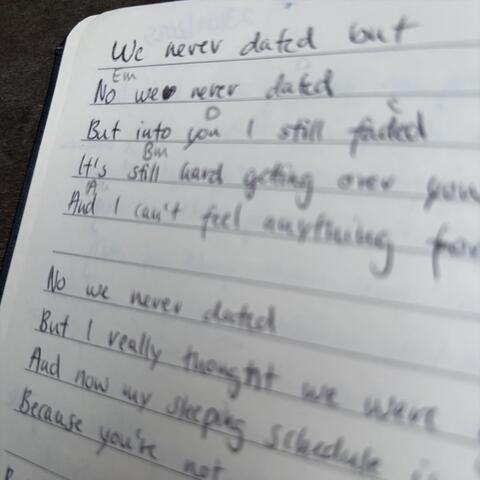 We never dated but
Em
No we never dated
D C
But into you I still faded
Bm
It's still hard getting over you
Am
And I can't feel anything for
No we never dated
But I really thought we were
And now my sleeping schedule is
Because you're not